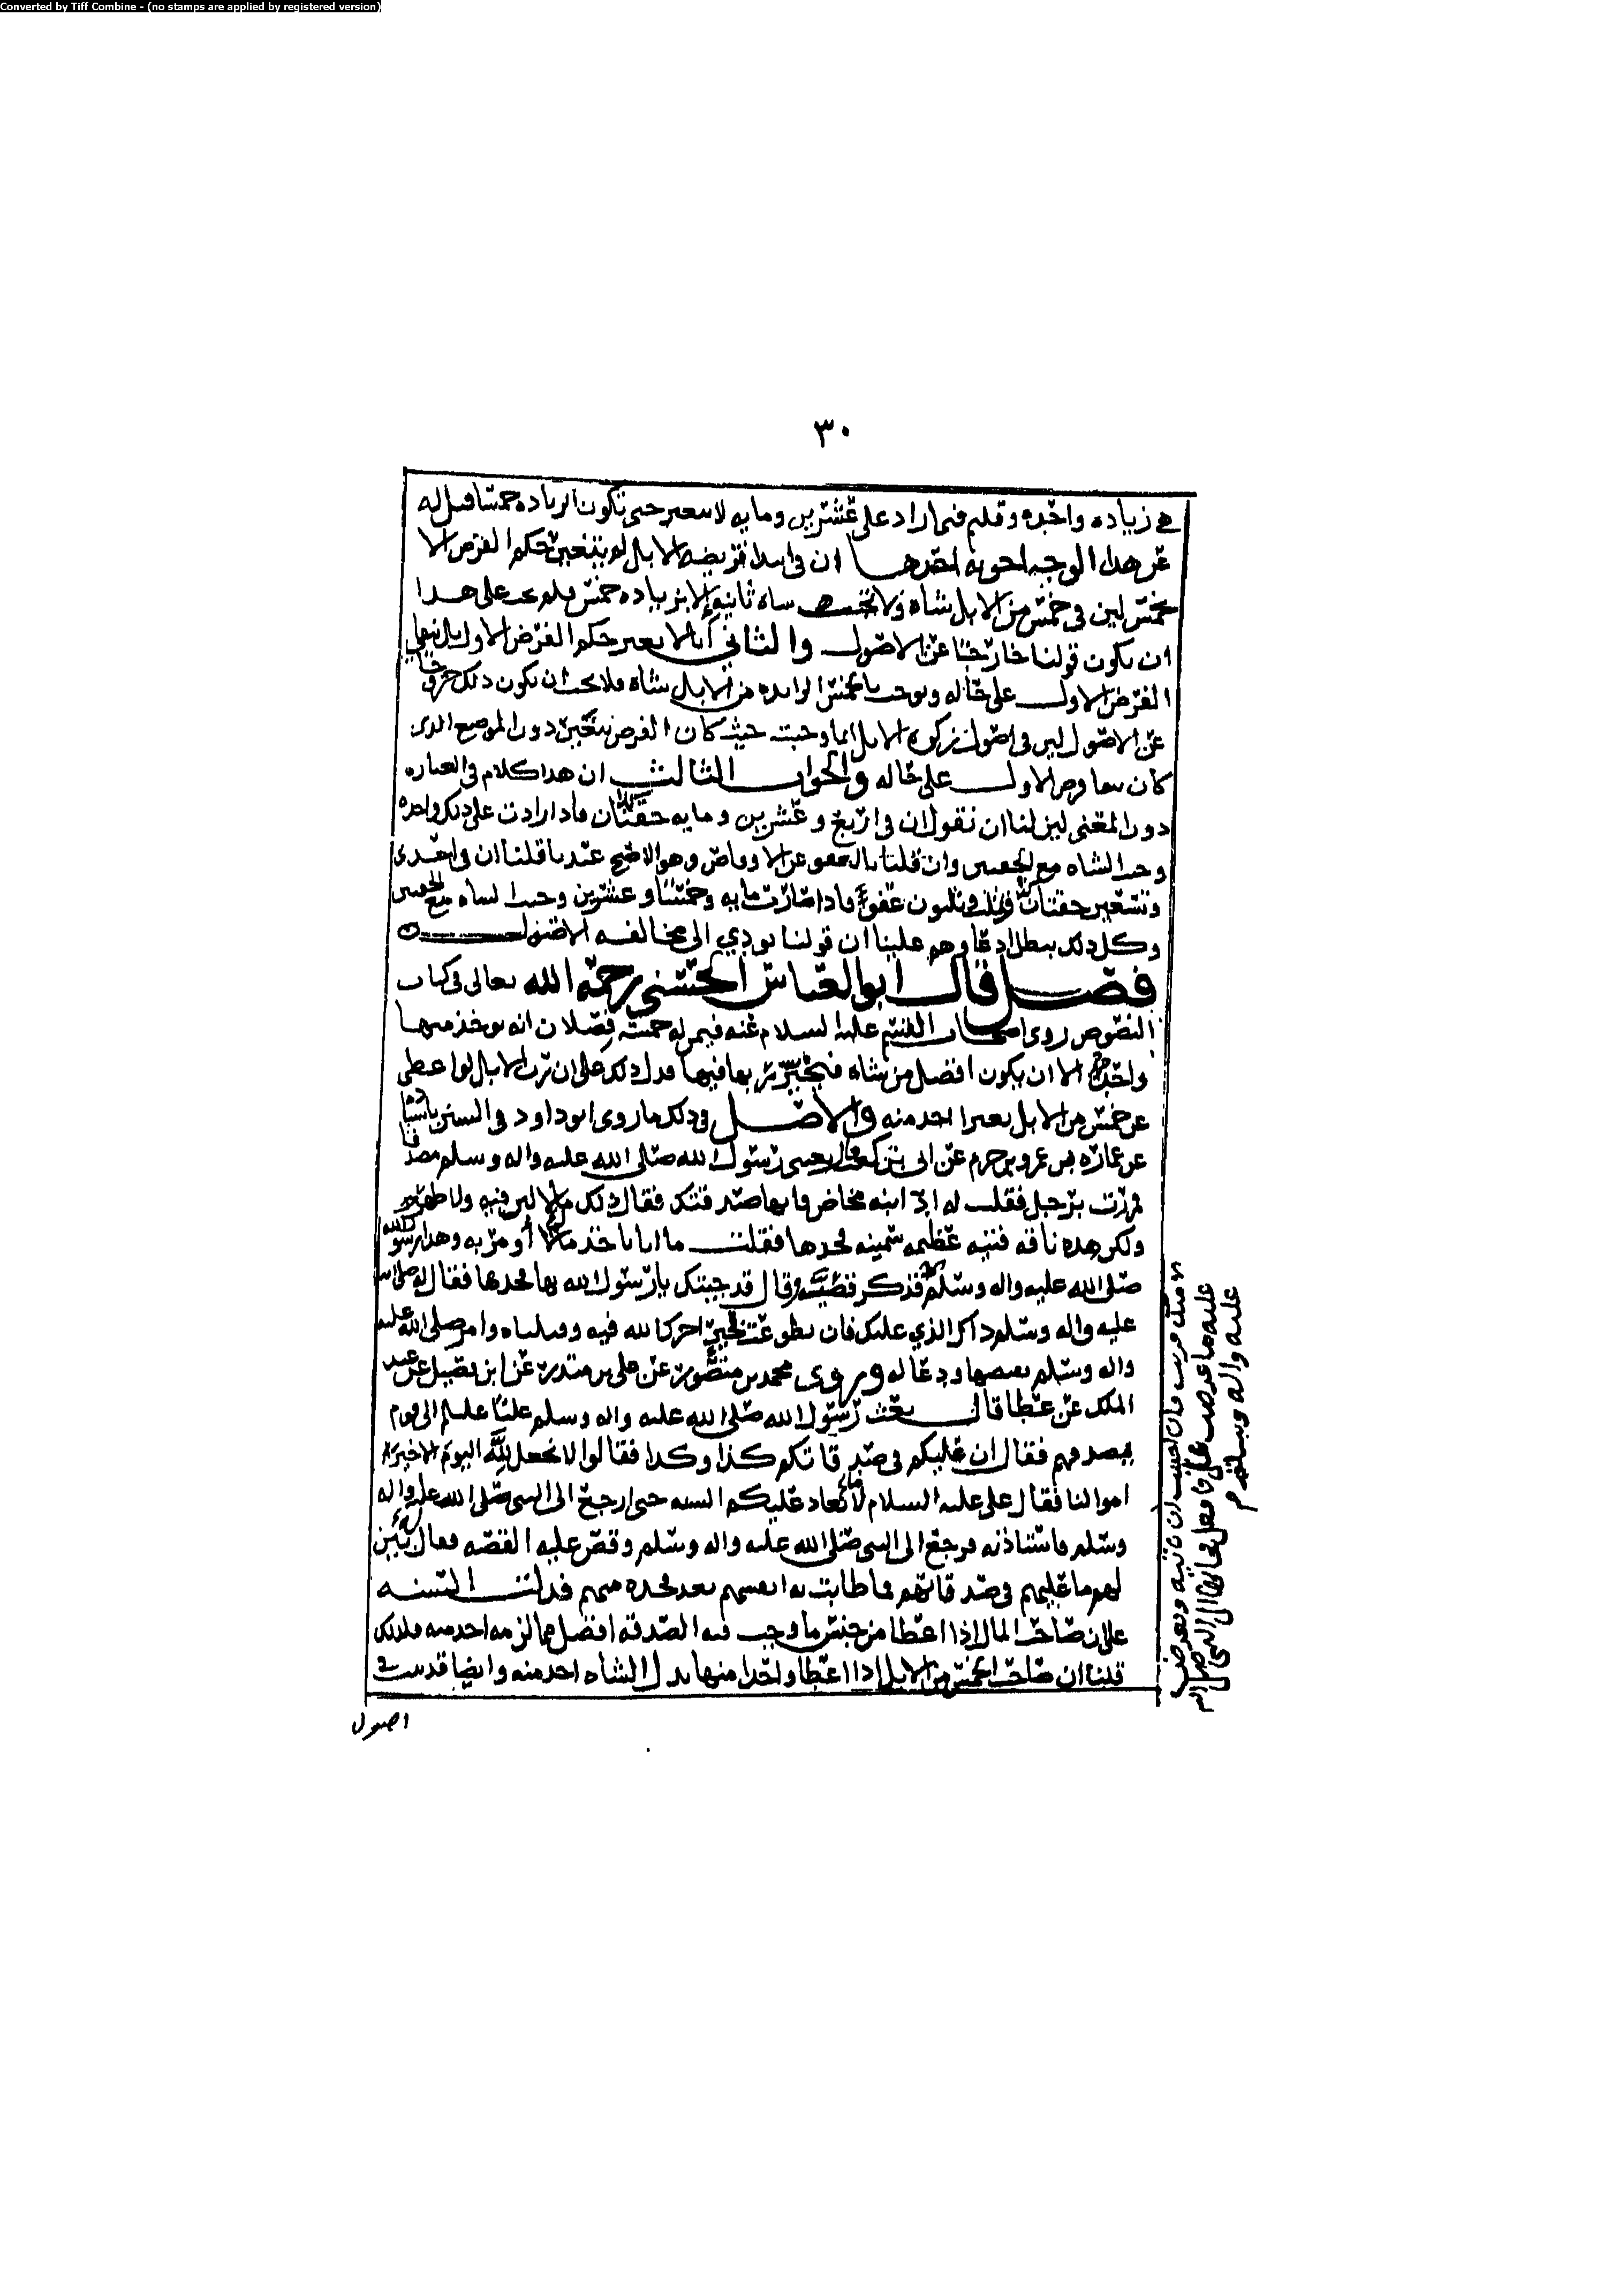 Converted by Tiff Combine - (no stamps are applied by registered version)
٣٠
في زياده واحده وقلتم فيما زاد على عشرين ومايه لا يتغير حتى تكون الزياده خمسا قيل له
عن هذا الوجه اجوبة احدها ان في ابتدا فريضه الابل لم يتغير حكم الفرض الا
بخمس ليس في خمس من الابل شاه ولا شاه ثانيه إلا بزياده خمس فلم يجب على هذا
ان يكون قولنا خارجا عن الاصول والثاني أنا لا نغير حكم الفرض الاول بل نبقي
الفرض الاول على حاله ونوجب بالخمس الزايده من الابل شاة فلا يجب ان يكون ذلك خروجا
عن الاصول ليس في اصول زكوة الابل انما وجبت حيث كان الفرض يتغير دون الموضع الذي
كان فرض الاول على حاله والجواب الثالث ان هذا كلام في العباره
دون المعنى ليس لنا ان نقول ان في اربع وعشرين ومايه حقتان فاذا زادت على ذلك واحده
وجب الشاه مع الحقتين وان قلنا بالعفو عن الاوقاص وهو الاصح عندنا قلنا ان في احدى
وتسعين حقتان وثلث وثلثون عفو فاذا صارت مايه وخمسا وعشرين وجبت الشاه مع الحقتين
وكل ذلك يبطل ادعاوهم علينا ان قولنا يودي الى مخالفه الاصول
فصل قال ابو العباس الحسني رحمه الله تعالى في كتاب
النصوص روى اصحاب القسم عليه السلام عنه فيمن له خمسة فصلان انه يوخذ منها
واحد الا ان يكون افضل من شاه فيخير ربها فيها فدل ذلك على ان رب الابل لو اعطى
عن خمس من الابل بعيرا اخذ منه والاصل في ذلك ما روى ابو داود في السنن باسناده
عن عماره بن عمرو بن حزم عن ابي بن كعب قال بعثني رسول الله صلى الله عليه واله وسلم مصدقا
فمررت برجل فقلت له ادّ ابنه مخاض فانها صدقتك فقال ذلك مالا لبن فيه ولا ظهر
ولكن هذه ناقه فتيه عظيمه سمينه فخذها فقلت ما انا باخذ مالم أومر به وهذا رسول الله
صلى الله عليه واله وسلم فذكر قصته وقال قد جيتك يا رسول الله بها فخذها فقال له صلى الله
عليه واله وسلم ذاك الذي عليك فان تطوعت بخير اجرك الله فيه وقبلناه وامر صلى الله عليه
واله وسلم بقبضها ودعا له وروى محمد بن منصور عن علي بن منذر عن ابن فضيل عن عبد
الملك عن عطا قال بعث رسول الله صلى الله عليه واله وسلم عليا عليلم الى قوم
يصدقهم فقال ان عليكم في صدقاتكم كذا وكذا فقالوا لا نجعل لله اليوم الا خير
اموالنا فقال علي عليه السلام ما عليكم السنه حتى ارجع الى النبي صلى الله عليه واله
وسلم فاستاذنه فرجع الى النبي صلى الله عليه واله وسلم وقص عليه القصه فقال بيّن
لهم ما عليهم في صدقاتهم فما طابت به انفسهم بعد فخذه منهم فدلت السنه
على ان صاحب المال اذا اعطا من جنس ما وجب فيه الصدقه افضل مما لزمه اخذ منه فلذلك
قلنا ان صاحب الخمس من الابل اذا اعطا واحدا منها بدل الشاه اخذ منه وايضا قد ثبت في
اصول
منك قريب فان احببت ان تاتيه وتعرض
عليه ما عرضت علي فافعل
عليه واله وسلم